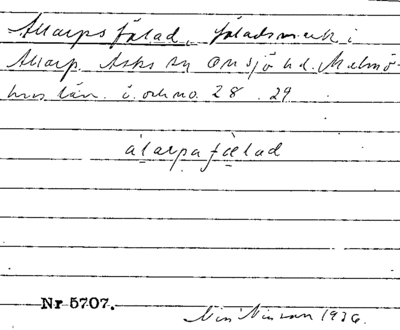 Allarps fälad, fäladsmark i
Allarp, Asks sn Onsjö hd. Malmö-
hus län. i. och no. 28. 29
alarpafælad
Nr 5707.
1936.